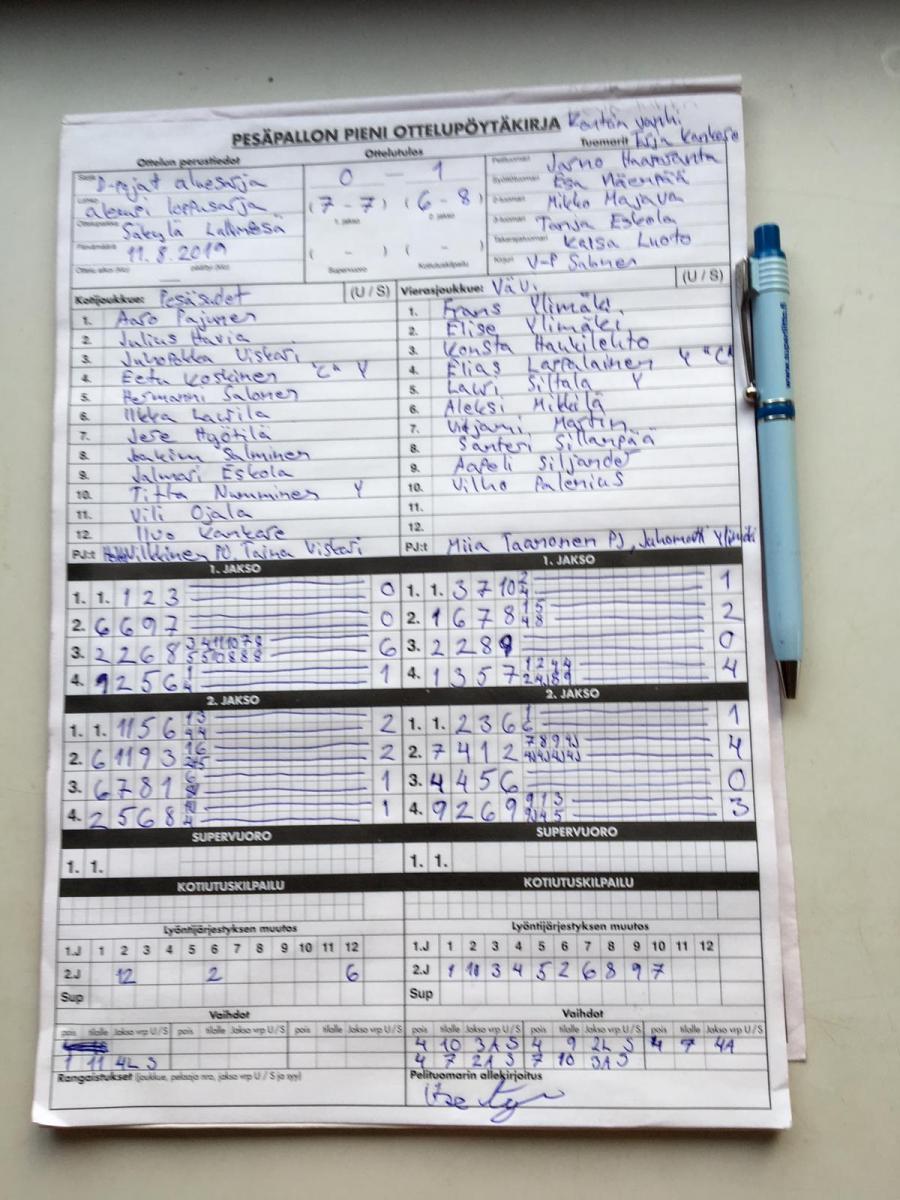 PESÄPALLON PIENI OTTELUPÖYTÄKIRJA Kentän vanhi
Ottelun perustiedot Ottelutulos Tuomarit Erja Kankare
Sarja D-pojat aluesarja
Lohko alemsi loppusarja
Ottelupaikka Säkylä Lallinossä
Päivämäärä 11.8.2019
Ottelu alkoi (klo) päättyi (klo)
0 - 1
(7 - 7) (6 - 8)
1. jakso 2. jakso
( - ) ( - )
Supervuoro Kotiutuskilpailu
Pelituomari Jarno Haanranta
Syöttötuomari Esa Mäenpää
2-tuomari Mikko Majava
3-tuomari Tanja Eskola
Takarajatuomari Kaisa Luoto
Kirjuri V-P Salonen
Kotijoukkue: Pesäsudet (U / S)
1. Aaro Pajunen
2. Julius Havia
3. Juhopekka Viskari
4. Eetu Koskinen "C" Y
5. Hermanni Salonen
6. Ilkka Laurila
7. Jere Hyötilä
8. Joakim Salminen
9. Jalmari Eskola
10. Titta Numminen Y
11. Vili Ojala
12. Iivo Kankare
PJ:t Vilkkinen PJ, Taina Viskari
Vierasjoukkue: VäVi (U / S)
1. Frans Ylimäki
2. Elise Ylimäki
3. Konsta Haukilehto
4. Elias Lappalainen Y "C"
5. Lauri Siltala Y
6. Aleksi Mikkilä
7. Viljami Martin
8. Santeri Sillanpää
9. Aapeli Siljander
10. Vilho Palenius
11.
12.
PJ:t Miia Taaronen PJ, Juhomatti Ylimäki
1. JAKSO 1. JAKSO
1. 1. 1 2 3 0
2. 6 6 9 7 0
3. 2 2 6 8 3 4 11 10 7 8 6
5 5 10 8 8 8
4. 9 2 5 6 1 1
4
1. 1. 3 7 10 2 1
4
2. 1 6 7 8 1 5 2
4 8
3. 2 2 8 9 0
4. 1 3 5 7 1 2 4 4 4
2 4
2. JAKSO 2. JAKSO
1. 1. 11 5 6 1 3 2
4 4
2. 6 11 9 3 1 6 2
3. 6 7 8 1 6 1
4. 2 5 6 8 10 1
4
1. 1. 2 3 6 1 1
6
2. 7 4 1 2 7 8 9 4
3. 4 4 5 6 0
4. 9 2 6 9 9 1 3 3
4 5
SUPERVUORO SUPERVUORO
1. 1. 1. 1.
KOTIUTUSKILPAILU KOTIUTUSKILPAILU
Lyöntijärjestyksen muutos Lyöntijärjestyksen muutos
1.J 1 2 3 4 5 6 7 8 9 10 11 12
2.J 12 2 6
Sup
1.J 1 2 3 4 5 6 7 8 9 10 11 12
2.J 1 10 3 4 5 2 6 8 9 7
Sup
Vaihdot Vaihdot
pois tilalle Jakso vrp U / S pois tilalle Jakso vrp U / S pois tilalle Jakso vrp U / S
1 11 4L S
pois tilalle Jakso vrp U / S pois tilalle Jakso vrp U / S pois tilalle Jakso vrp U / S
4 10 3A S 4 9 2L S 4 7 4A
4 7 2A S 7 10 3A S
Rangaistukset (joukkue, pelaaja nro, jakso vrp U / S ja syy)
Pelituomarin allekirjoitus